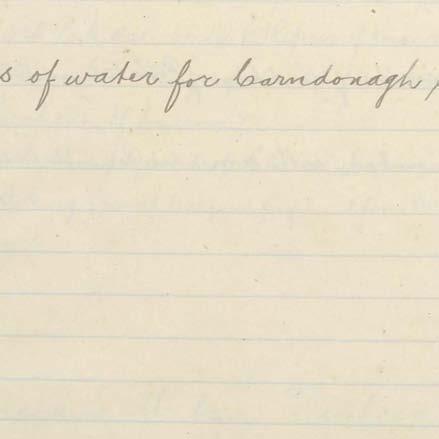 s of water for Carndonagh